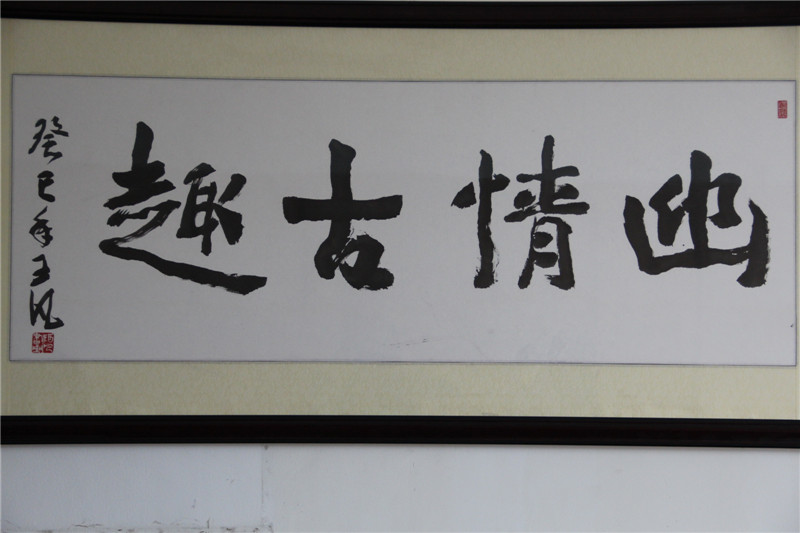 幽情古趣
癸巳年王